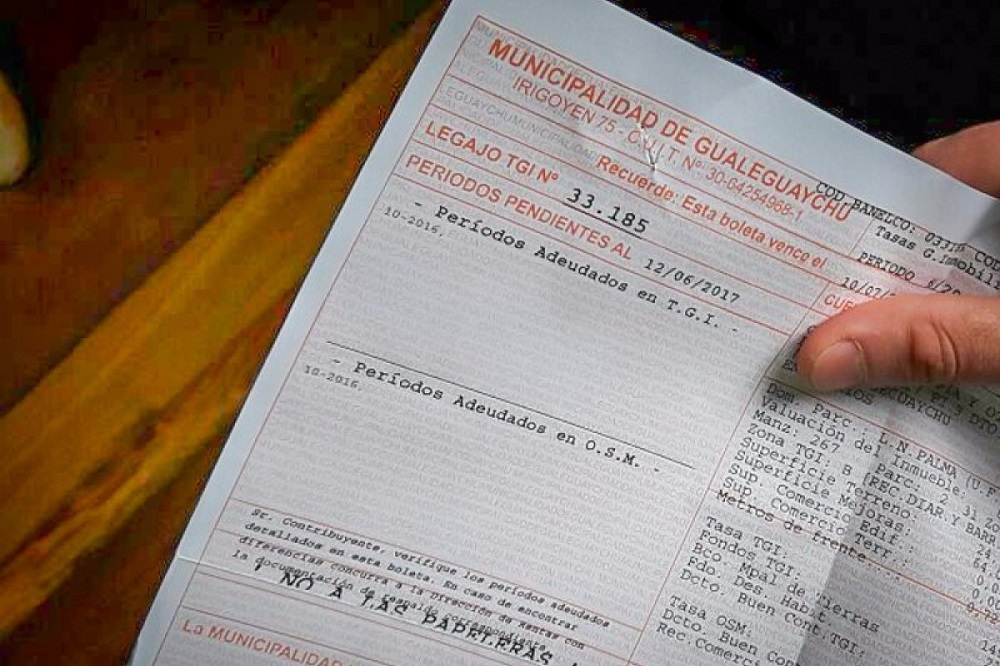 MUNICIPALIDAD DE GUALEGUAYCHU
IRIGOYEN 75 - C.U.I.T. Nº: 30-64254968-1
LEGAJO TGI Nº 33.185
Recuerde: Esta boleta vence el 10/07/
PERIODOS PENDIENTES AL 12/06/2017
- Períodos Adeudados en T.G.I. -
10-2016,
- Períodos Adeudados en O.S.M. -
10-2016,
Sr. Contribuyente, verifique los períodos adeudados
detallados en esta boleta. En caso de encontrar
diferencias concurra a la Dirección de Rentas con
la documentación de respaldo correspondiente.
¡ NO A LAS PAPELERAS !
La MUNICIPALIDAD
COD BANELCO: 0331
Tasas G.Inmobili
PERIODO 6/20
Dom. Parc.: L.N. PALMA (U.F
Valuación del Inmueble:
Manz: 267 Parc: 2
Zona TGI: B (REC.DIAR.Y BARR
Superficie Terreno:
Superficie Mejoras:
Sup. Comercio Edif.:
Sup. Comercio Terr.:
Metros de frente....:
Tasa TGI:
Fondos TGI:
Bco Mpal de Tierras
Fdo. Des. Habit.
Dcto. Buen Cont.TGI:
Tasa OSM:
Dcto. Buen Con
Rec.Comerc.